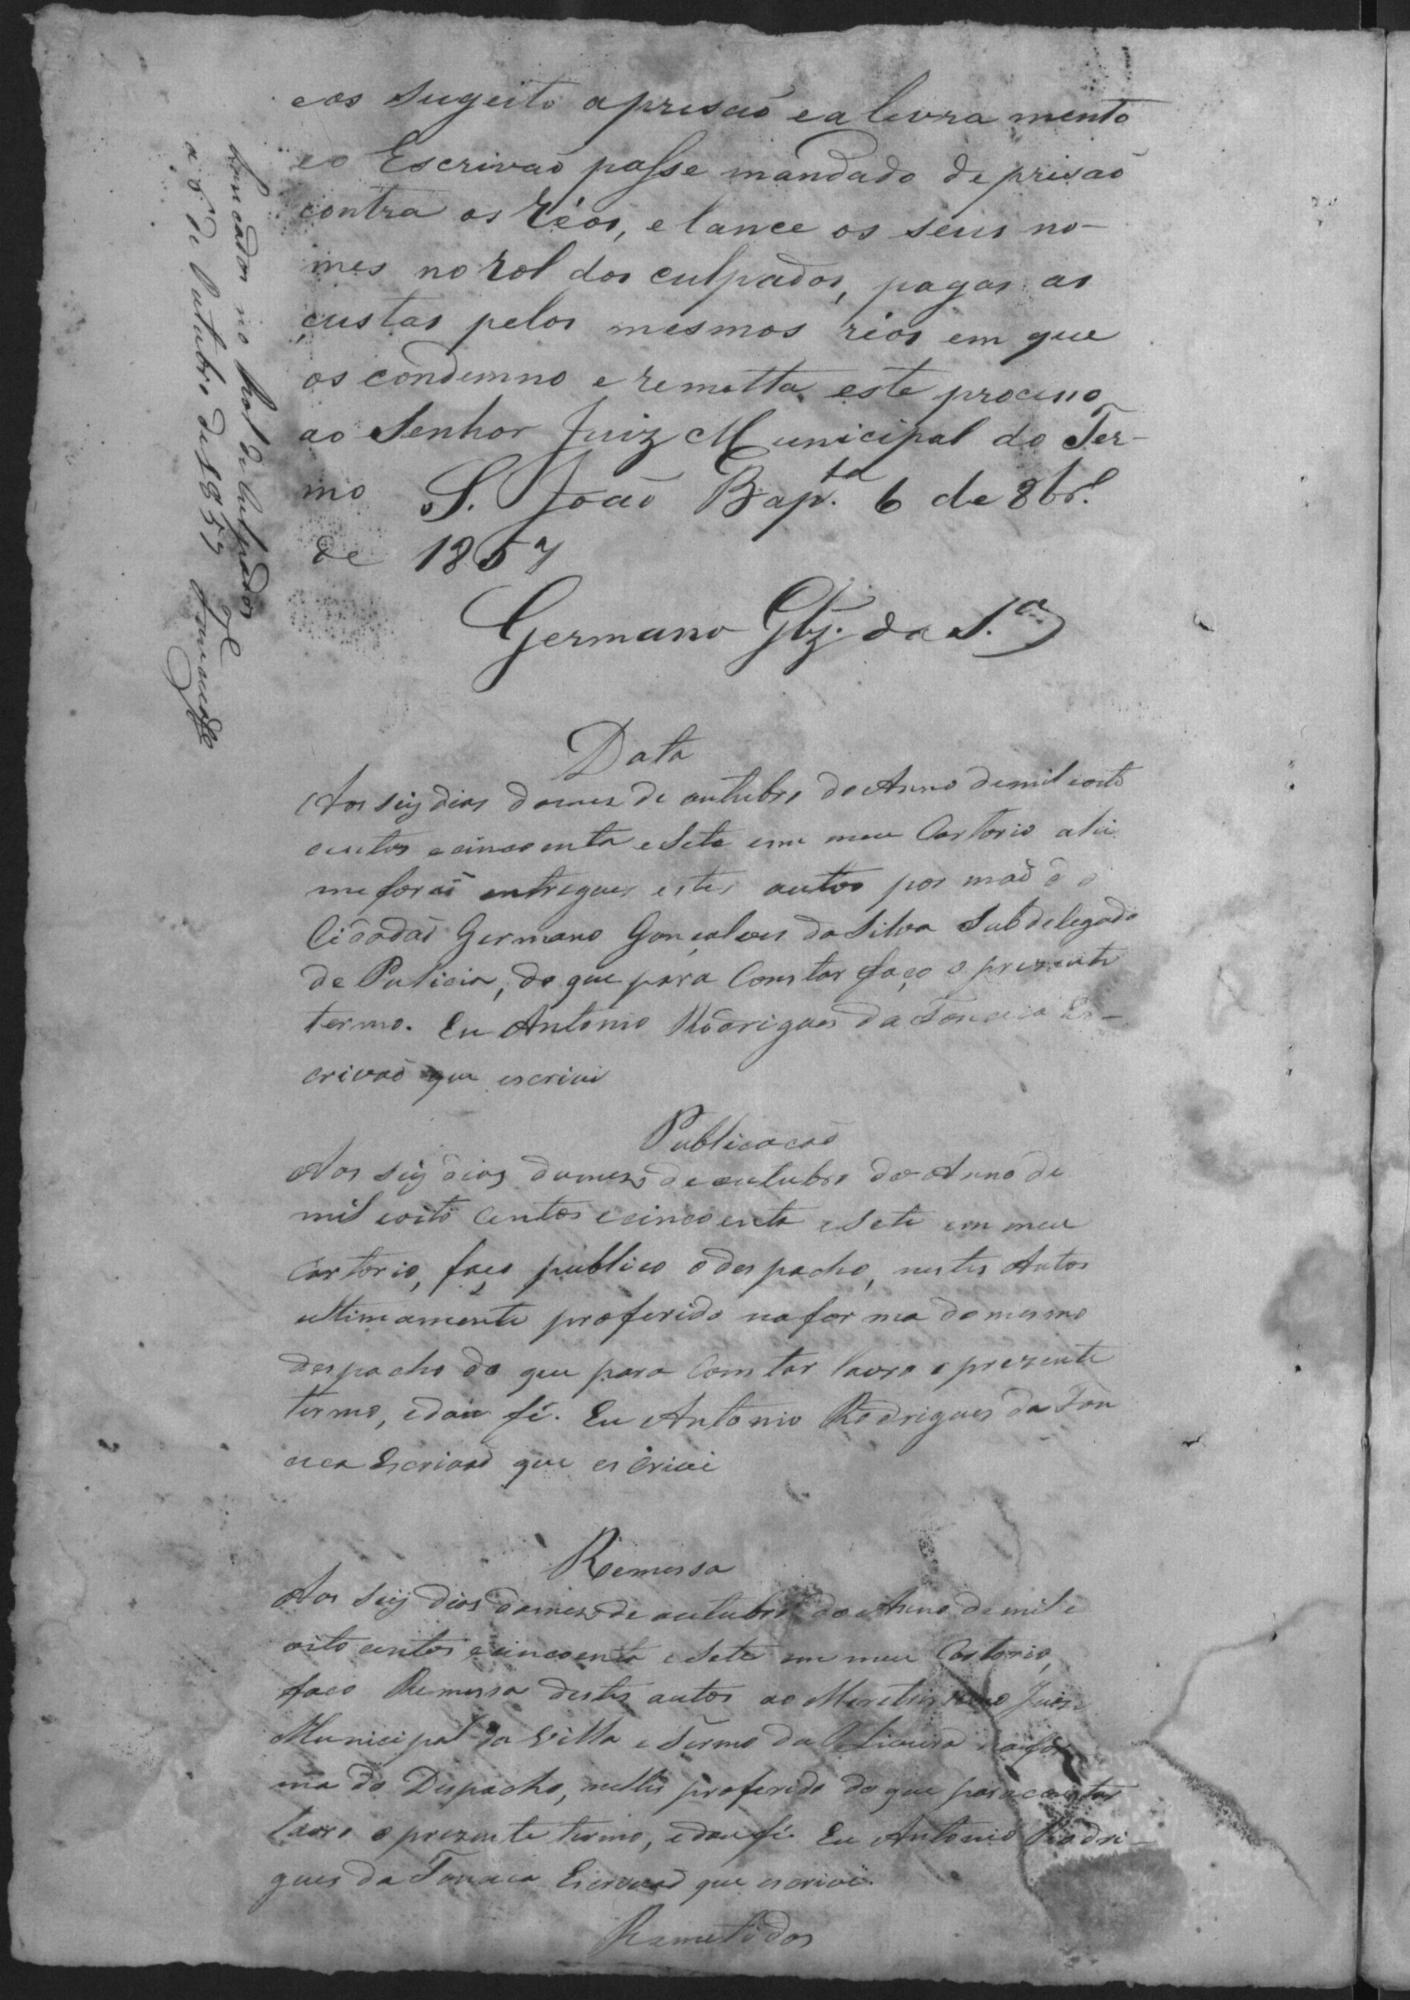 eos sugeito a prisaõ e a livra mento
eo Escrivaõ passe mandado de prisaõ
contra os réos, e lance os seus no-
mes no rol dos culpados, pagas as
custas pelos mesmos réos em que
os condemno e remetta este processo
ao Senhor Juiz Municipal do Ter-
mo S. Joaõ Bap.ta 6 de 8br.º
de 1857
Germano Glz. da S.a
Lancados no Rol de Culpados
a 6 de Outubro de 1857
Data
Aos seis dias do mez de outubro do Anno de mil eoito
centos ecincoenta eSete em meu Cartorio ahi
me foraõ entregues estes autos por maõ do
Cidadaõ Germano Gonçalves da Silva Subdelegado
de Policia, do que para Constar faço o prezente
termo. Eu Antonio Rodrigues da Fonceca Es-
crivaõ que escrivi
Publicacaõ
Aos seis dias do mez de outubro do Anno de
mil eoito centos ecincoenta eSete em meu
Cartorio, faço publico o despacho, nestes Autos
ultimamente proferido na for ma do mesmo
despacho do que para Constar lavro o prezente
termo, edou fé. Eu Antonio Rodrigues da Fon
ceca Escrivaõ que escrivi
Remessa
Aos seis dias do mez de outubro do Anno de mil e
oito centos ecincoenta eSete em meu Cartorio,
faco Remessa destes autos ao Meretissimo Juis
Municipal da Villa e Termo da Oliveira na for
ma do Despacho, nelles proferido do que para constar
lavro o prezente termo, edou fé. Eu Antonio Rodri-
gues da Fonceca Escrivaõ que escrivi.
Remetidos